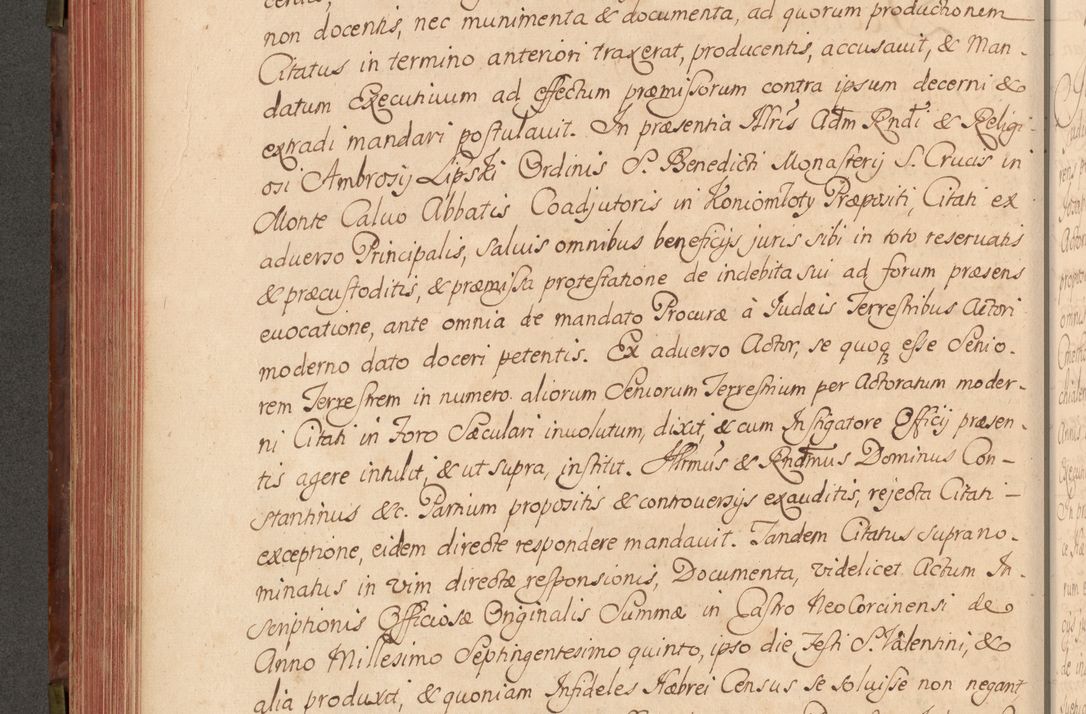 non docentis, nec munimenta & documenta, ad quorum productionem
Citatus in termino anteriori traxerat, producentis, accusauit, & Man-
datum Executiuum ad effectum præmissorum contra ipsum decerni &
extradi mandari postulauit. In præsentia Illris Adm Rndi & Religi-
osi Ambrosij Lipski Ordinis S. Benedicti Monasterij S. Crucis in
Monte Caluo Abbatis Coadjutoris in Koniomłoty Præpositi, Citati ex
aduerso Principalis, saluis omnibus beneficijs juris sibi in toto reseruatis
& præcustoditis, & præmissa protestatione de indebita sui ad forum præsens
euocatione, ante omnia de mandato Procuræ à Judæis Terrestribus Actori
moderno dato doceri petentis. Ex aduerso Actor, se quoq esse Senio-
rem Terrestrem in numero aliorum Seniorum Terrestrium per Actoratum moder-
ni Citati in Foro Sæculari inuolutum, dixit, & cum Instigatore Officij præsen-
tis agere intulit, & ut supra, institit. Illrmus & Rndmus Dominus Con-
stantinus &c. Partium propositis & controuersijs exauditis, rejecta Citati
exceptione, eidem directe respondere mandauit. Tandem Citatus supra no-
minatus in vim directæ responsionis, Documenta, videlicet Actum In-
scriptionis Officiosæ Originalis Summæ in Castro NeoCorcinensi de
Anno Millesimo Septingentesimo quinto, ipso die Festi S. Valentini, &
alia produxit, & quoniam Infideles Hæbrei Census se soluisse non negant